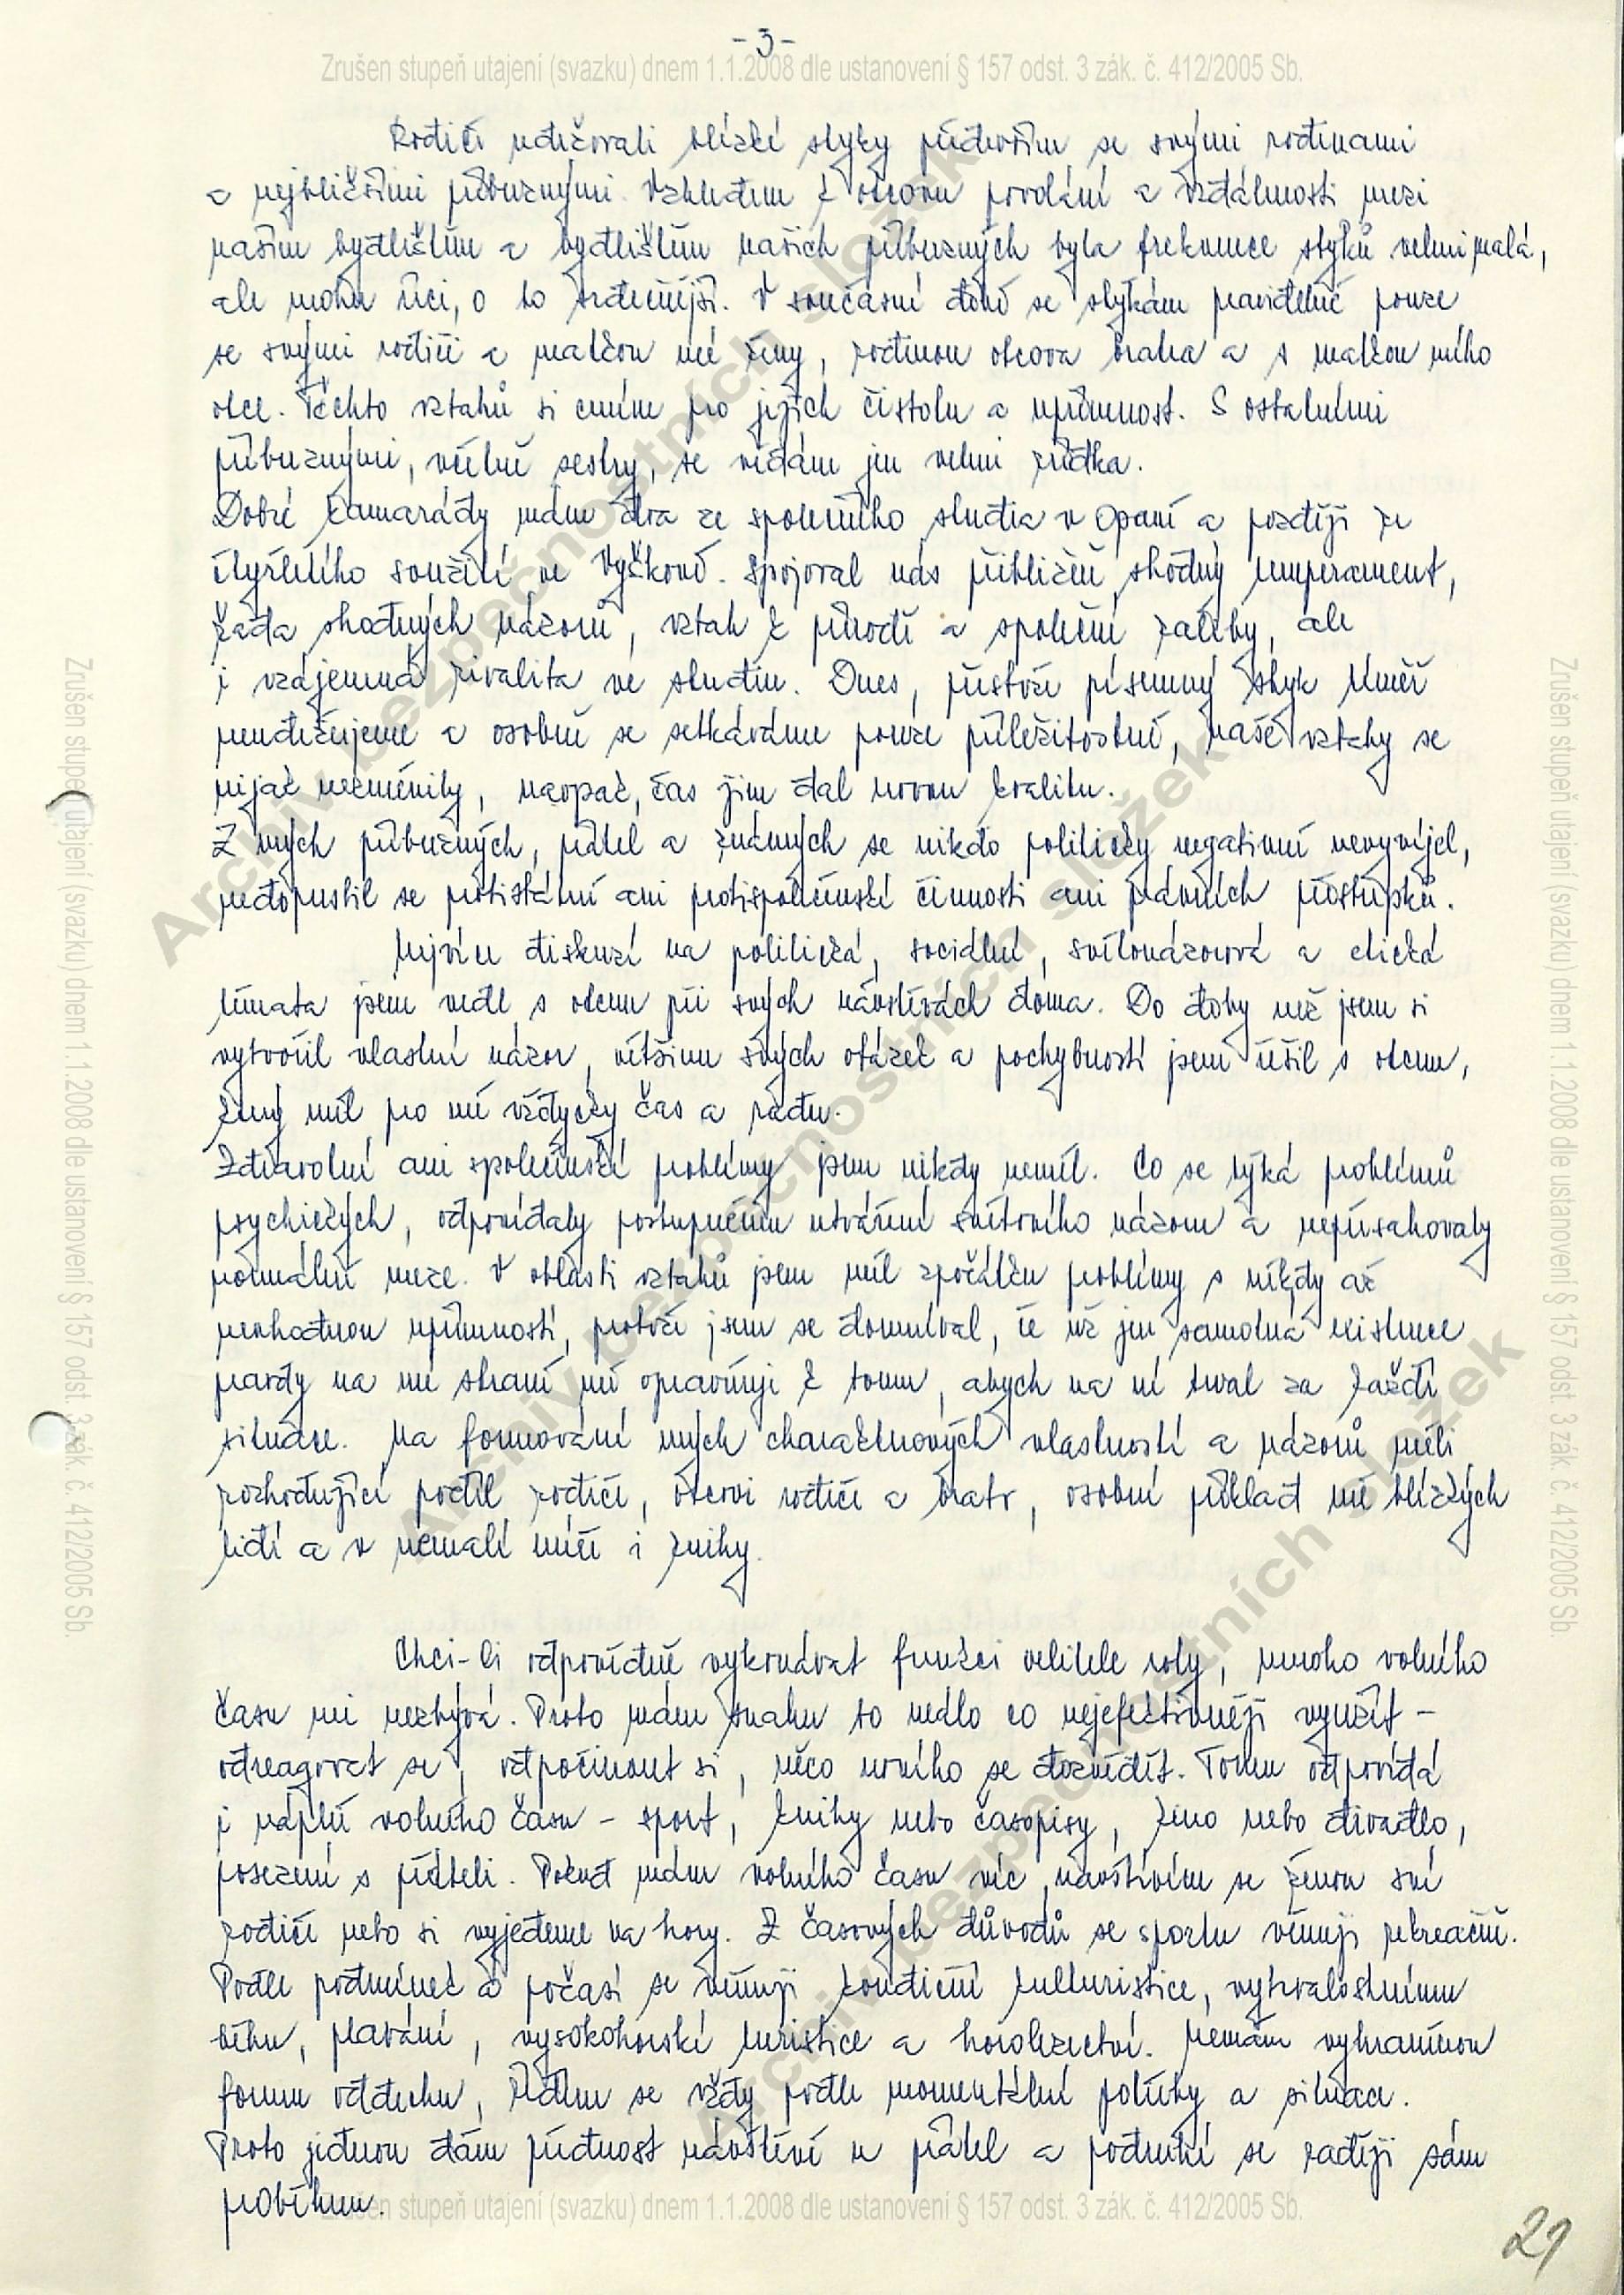 - 3 -
Zrušen stupeň utajení (svazku) dnem 1.1.2008 dle ustanovení § 157 odst. 3 zák. č. 412/2005 Sb.
Rodiče udržovali blízké styky především se svými rodinami
a nejbližšími příbuznými. Vzhledem k otcovu povolání a vzdálenosti mezi
naším bydlištěm a bydlištěm našich příbuzných byla frekvence styků velmi malá,
ale mohu říci, o to srdečnější. V současné době se stýkám pravidelně pouze
se svými rodiči a matkou mé ženy, rodinou otcova bratra a s matkou mého
otce. Těchto vztahů si cením pro jejich čistotu a upřímnost. S ostatními
příbuznými, včetně sestry, se vídám jen velmi zřídka.
Dobré kamarády mám dva ze společného studia v Opavě a později ze
čtyřletého soužití ve Vyškově. Spojoval nás přibližně shodný temperament,
řada shodných názorů, vztah k přírodě a společné záliby, ale
i vzájemná rivalita ve studiu. Dnes, přestože písemný styk téměř
neudržujeme a osobně se setkáváme pouze příležitostně, naše vztahy se
nijak nezměnily, naopak, čas jim dal novou kvalitu.
Z mých příbuzných, přátel a známých se nikdo politicky negativně nevyvíjel,
nedopustil se protistátní ani protispolečenské činnosti ani právních přestupků.
Nejvíce diskuzí na politická, sociální, světonázorová a etická
témata jsem vedl s otcem při svých návštěvách doma. Do doby než jsem si
vytvořil vlastní názor, většinu svých otázek a pochybností jsem řešil s otcem,
který měl pro mě vždycky čas a radu.
Zdravotní ani společenské problémy jsem nikdy neměl. Co se týká problémů
psychických, odpovídaly postupnému utváření světového názoru a nepřesahovaly
normální meze. V oblasti vztahů jsem měl zpočátku problémy s někdy až
nevhodnou upřímností, protože jsem se domníval, že už jen samotná existence
pravdy na mé straně mě opravňuje k tomu, abych na ní trval za každé
situace. Na formování mých charakterových vlastností a názorů měli
rozhodující podíl rodiče, otcovi rodiče a bratr, osobní příklad mě blízkých
lidí a v nemalé míře i knihy.
Chci-li odpovědně vykonávat funkci velitele roty, mnoho volného
času mi nezbývá. Proto mám snahu to málo co nejefektivněji využít -
odreagovat se, odpočinout si, něco nového se dozvědět. Tomu odpovídá
i náplň volného času - sport, knihy nebo časopisy, kino nebo divadlo,
posezení s přáteli. Pokud mám volného času víc, navštívím se ženou své
rodiče nebo si vyjedeme na hory. Z časových důvodů se sportu věnuji rekreačně.
Podle podmínek a počasí se věnuji kondiční kulturistice, vytrvalostnímu
běhu, plavání, vysokohorské turistice a horolezectví. Nemám vyhraněnou
formu oddechu, řídím se vždy podle momentální potřeby a situace.
Proto jednou dám přednost návštěvě u přátel a podruhé se raději sám
proběhnu.
Zrušen stupeň utajení (svazku) dnem 1.1.2008 dle ustanovení § 157 odst. 3 zák. č. 412/2005 Sb.
29
Zrušen stupeň utajení (svazku) dnem 1.1.2008 dle ustanovení § 157 odst. 3 zák. č. 412/2005 Sb.
Zrušen stupeň utajení (svazku) dnem 1.1.2008 dle ustanovení § 157 odst. 3 zák. č. 412/2005 Sb.
Archiv bezpečnostních složek
Archiv bezpečnostních složek
Archiv bezpečnostních složek